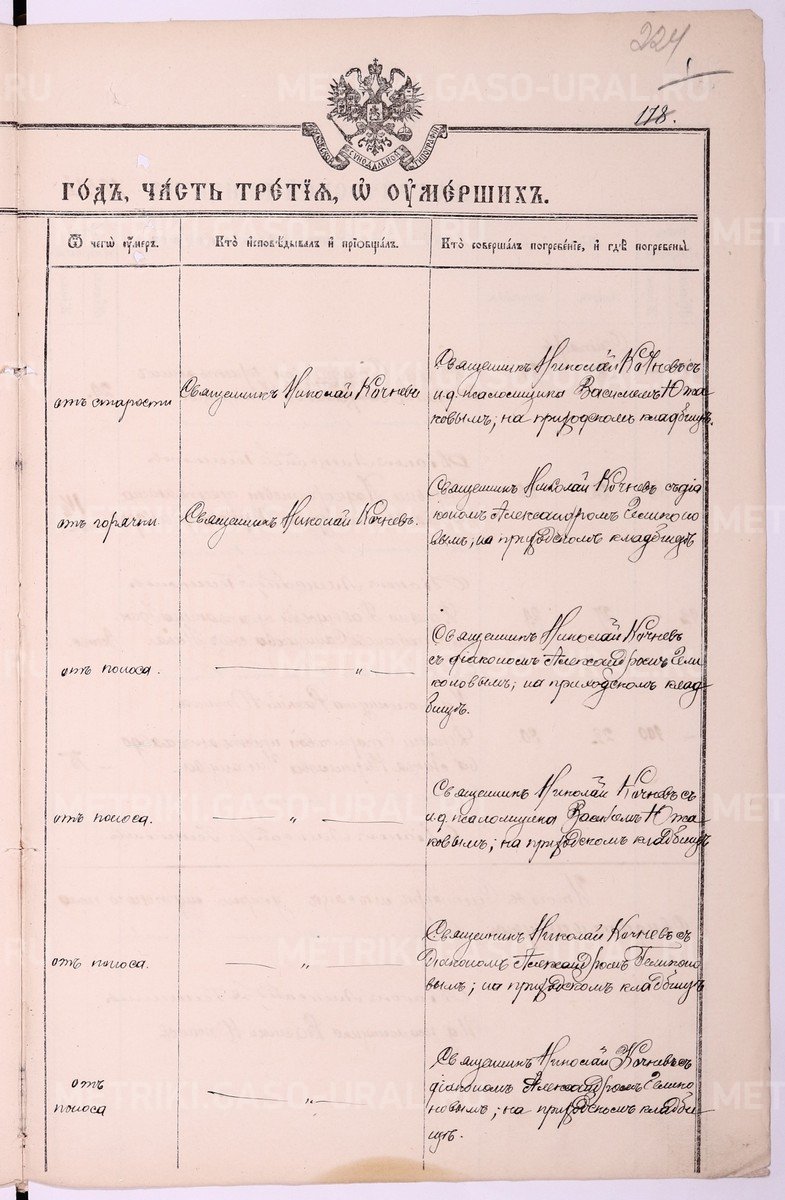 224
1
178.
МОСКОВСКОЙ СѴНОДАЛЬНОЙ ТИПОГРАФІИ
ГО́ДЪ, ЧА́СТЬ ТРЕ́ТІѦ, Ѡ҆ ОУ҆МЕ́РШИХЪ.
Ѿ чегѡ̀ ᲂу҆́меръ.
Кто̀ и҆сповѣ́дывалъ и҆ прїѡбща́лъ.
Кто̀ соверша́лъ погребе́нїе, и҆ гдѣ̀ погребены̀.
отъ старости
Священникъ Николай Кочневъ
Священникъ Николай Кочневъ съ
и.д. псаломщика Василіемъ Южа
ковымъ; на приходскомъ кладбищѣ.
отъ горячки
Священникъ Николай Кочневъ.
Священникъ Николай Кочневъ съ діа
кономъ Александромъ
вымъ; на приходскомъ кладбищѣ
отъ поноса.
— „ —
Священникъ Николай Кочневъ
съ діакономъ Александромъ
ковымъ; на приходскомъ клад
бищѣ.
отъ поноса.
— „ —
Священникъ Николай Кочневъ съ
и.д. псаломщика Южа
ковымъ; на приходскомъ кладбищѣ
отъ поноса.
— „ —
Священникъ Николай Кочневъ съ
діакономъ Александромъ
вымъ; на приходскомъ кладбищѣ
отъ
поноса
— „ —
Священникъ Николай Кочневъ съ
діакономъ Александромъ
новымъ; на приходскомъ кладби
щѣ.
METRIKI.GASO-URAL.RU